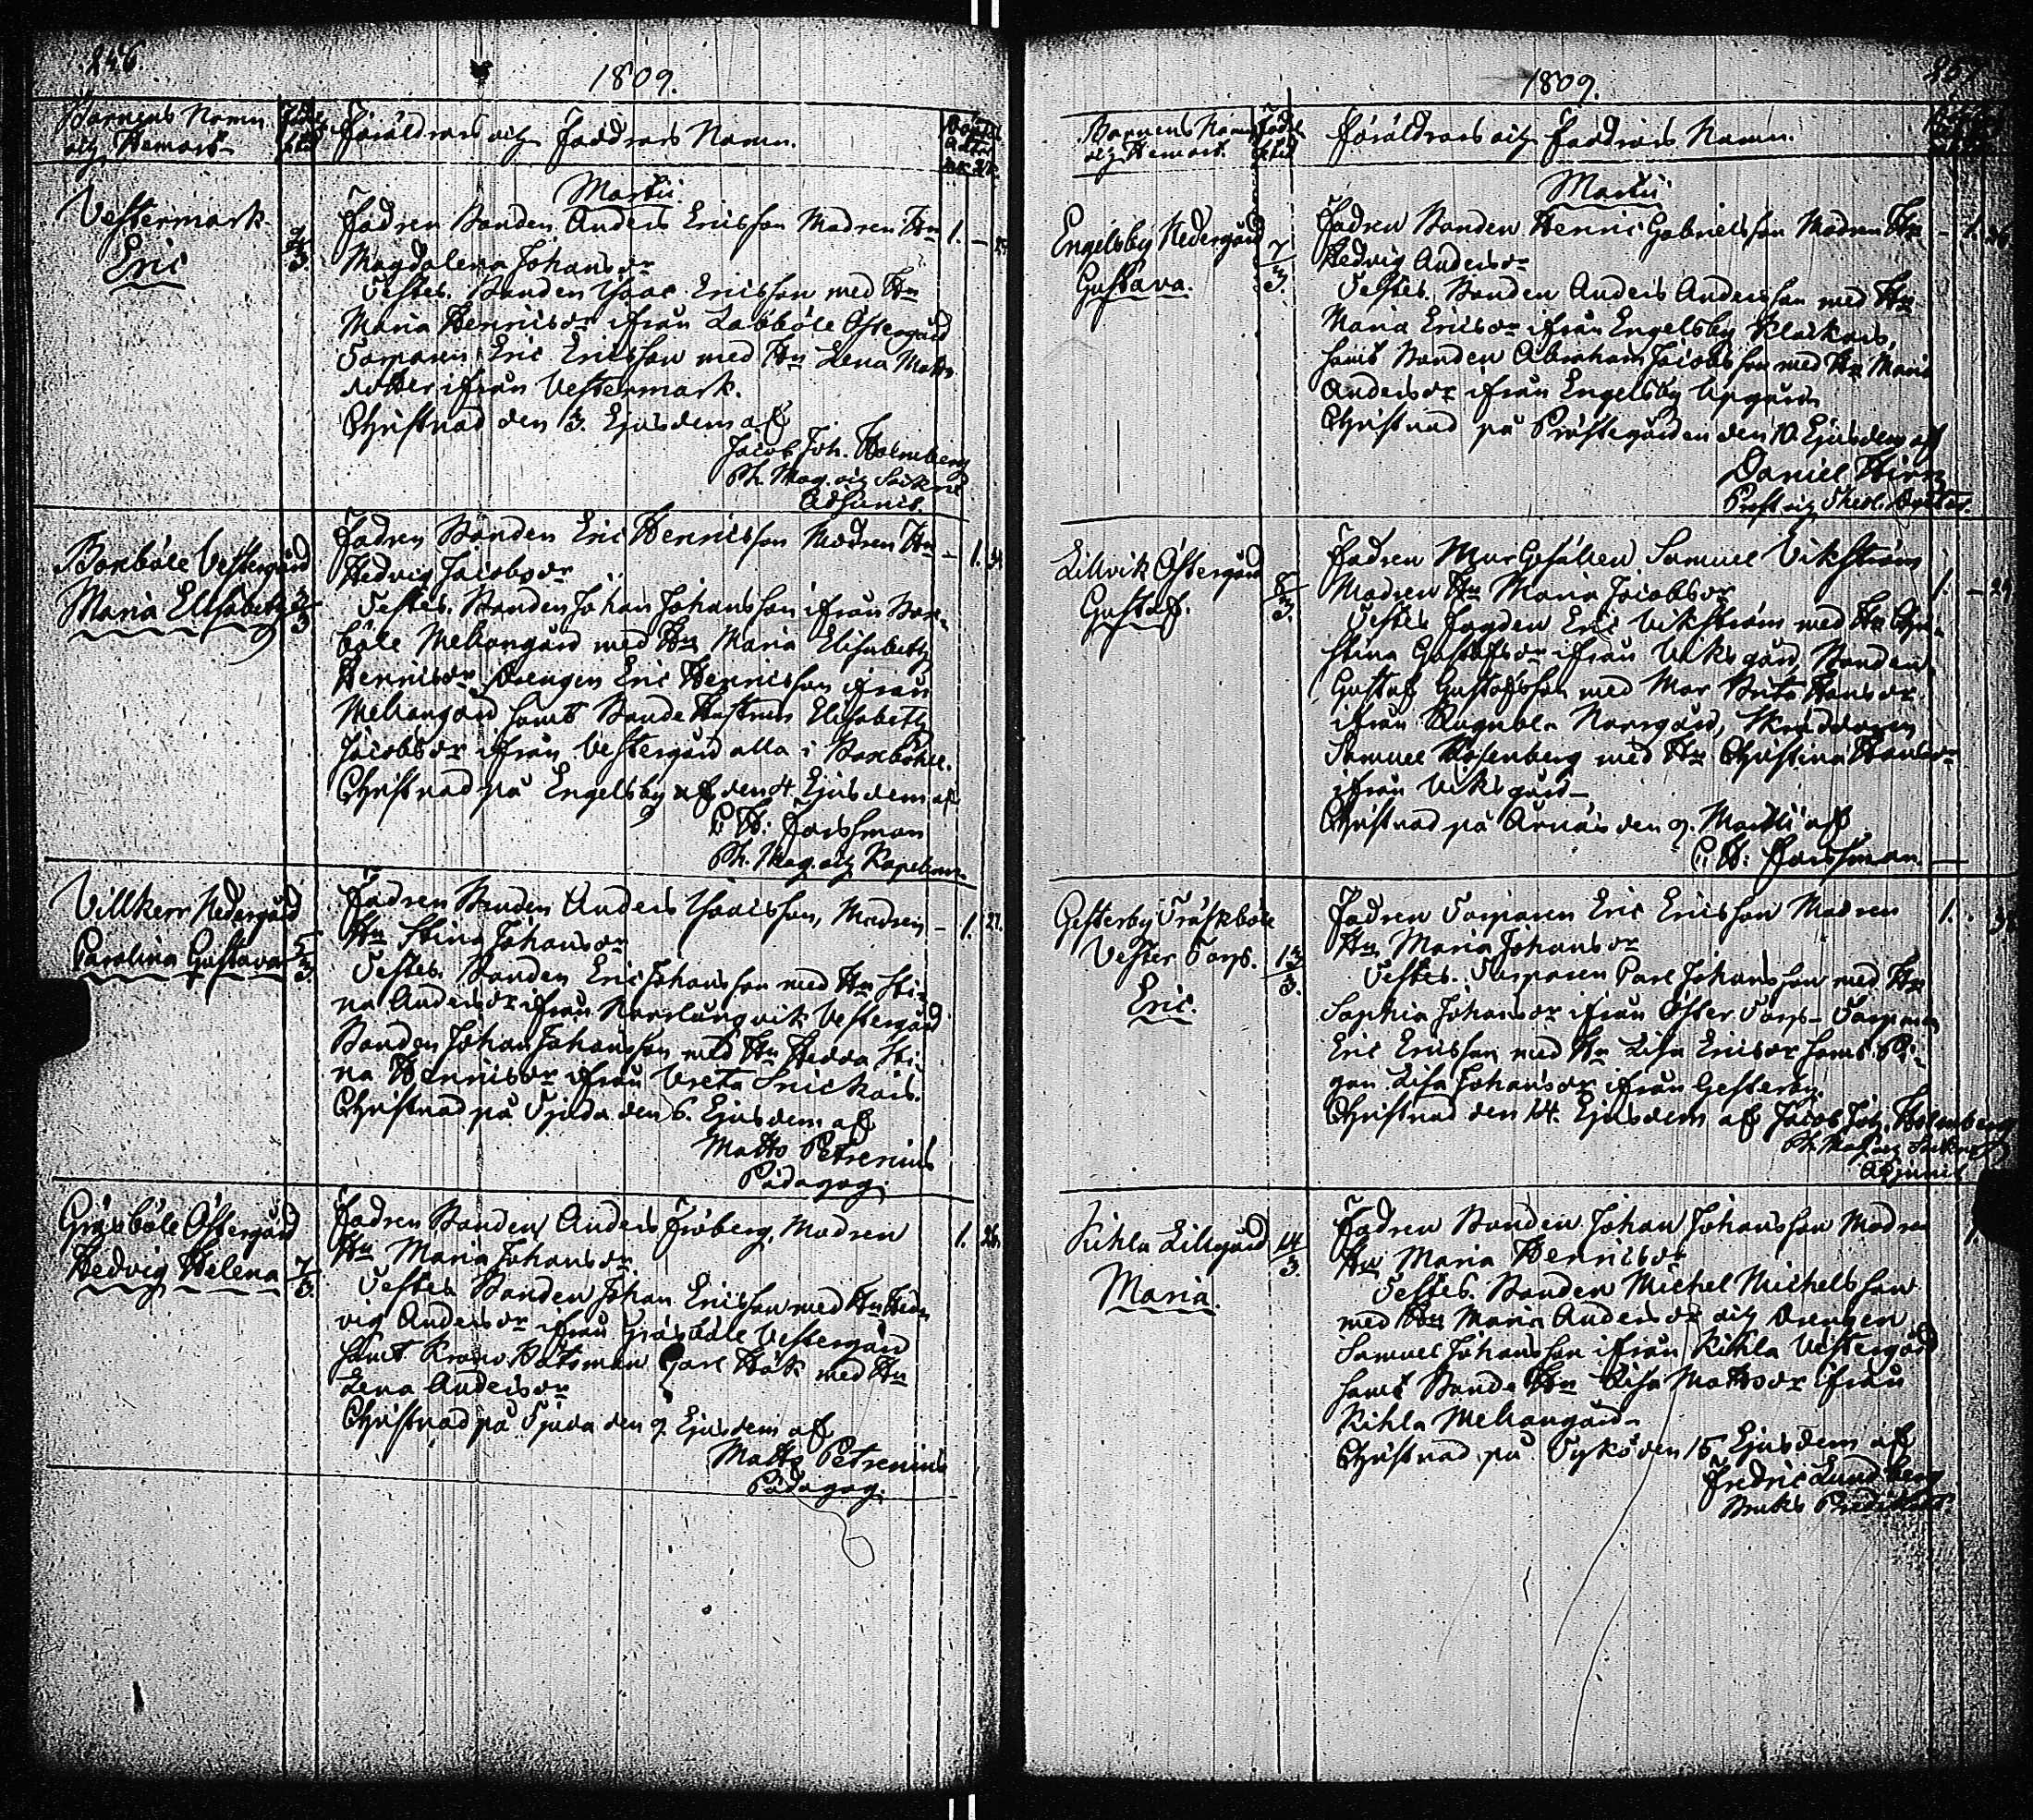 256.
1809.
Barnens Namn
och Hemort
Föräldrars och Faddrars Namn.
Martii
Vestermark
Eric
2/3.
Fadren Bonden Anders Ericsson Modren Hu
1. –
Magdalena Johansdr
Testes. Bonden Isaac Ericsson med Hu
Maria Henricsdr ifrån Labböle Östergård
Torparen Eric Ericsson med Hu Lena Matts
dotter ifrån Vestermark.
Christnad den 3. Ejusdem af
Jacob Joh. Holmberg
Ph. Mag. och Sockne
Adjunct.
Boxböle Vestergård
Maria Elisabeth
Fadren Bonden Eric Henricsson Modren Hu
– 1.
Hedvig Jacobsdr
Testes. Bonden Johan Johansson ifrån Box-
böle Mellangård med Hu Maria Elisabeth
Henricsdr Drengen Eric Henricsson ifrån
Mellangård samt Bonde Hustrun Elisabeth
Jacobsdr ifrån Vestergård alla i Boxböhle.
Christnad på Engelsby af den 4 Ejusdem af
C. H: Forssman
Ph. Mag. och Kapellan.
Villkerr Nedergård
Carolina Gustava
5/3.
Fadren Bonden Anders Isaacsson, Modren
– 1. 27.
Hu Stina Johansdr
Testes. Bonden Eric Johansson med Hu Sti-
na Andersdr ifrån Norrlångvik Vestergård
Bonden Johan Johansson med Hu Hedda Sti-
na Henricsdr ifrån Vreta Snickars.
Christnad på Tjuda den 6. Ejusdem af
Matts Petrenius
Pädagog.
Gräsböle Östergård
Hedvig Helena
7/3.
Fadren Bonden Anders Fröberg, Modren
1. 26.
Hu Maria Johansdr
Testes. Bonden Johan Ericsson med Hu Hed-
vig Andersdr ifrån Gräsböle Vestergård
samt Krono Båtsman Carl Hök med Hu
Lena Andersdr
Christnad på Tjuda den 9. Ejusdem af
Matts Petrenius
Pädagog.
257.
1809.
Barnens Namn
och Hemort.
Föräldrars och Faddrars Namn.
Martii
Engelsby Nedergård
Gustava.
7/3.
Fadren Bonden Henric Gabrielsson Modren Hu
– 1. 26.
Hedvig Andersdr
Testes. Bonden Anders Andersson med Hu
Maria Ericsdr ifrån Engelsby Klockars,
samt Bonden Abraham Jacobsson med Hu Maria
Andersdr ifrån Engelsby Uppgård
Christnad på Prästegården den 10. Ejusdem af
Daniel Hirn
Prost och Theol. Doctor.
Lillvik Östergård
Gustaf.
8/3.
Fadren Mur Gesällen Samuel Vikström
1. – 29.
Modren Hu Maria Jacobsdr
Testes Fogden Eric Vikström med Hu Chri-
stina Gustafsdr ifrån Viksgård, Bonden
Gustaf Gustafsson med Mor Brita Hansdr
ifrån Rugnola Norrgård, Skräddaren
Samuel Rosenberg med Hu Christina Hansdr
ifrån Viksgård
Christnad på Arnäs den 9. Martii af
C. H: Forssman.
Gesterby Träskböle
Vester Torp.
Eric.
13/3.
Fadren Torparen Eric Ericsson Modren
1.
Hu Maria Johansdr
Testes. Torparen Carl Johansson med Hu
Sophia Johansdr ifrån Öster Torp – Torparen
Eric Ericsson med Hu Lisa Ericsdr samt Pi-
gan Lisa Johansdr ifrån Gesterby.
Christnad den 14. Ejusdem af Jacob Joh. Holmberg
Ph. Mag. och Sockne
Adjunct
Kihla Lillgård
Maria.
14/3.
Fadren Bonden Johan Johansson Modren
1.
Hu Maria Henricsdr
Testes. Bonden Michel Michelsson
med Hu Maria Andersdr och Drengen
Samuel Johansson ifrån Kihla Vestergård
samt Bonde Hu Lisa Mattsdr ifrån
Kihla Mellangård
Christnad på Tykö den 15 Ejusdem af
Fredric Lundberg
Bruks Predikant.